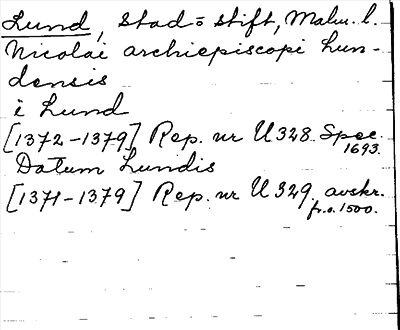 Lund, stad o stift, Malm. l.
Nicolai archiepiscopi Lun-
densis
i Lund
[1372-1379] Rep. nr U 328. Spec.
1693.
Datum Lundis
[1371-1379] Rep. nr U 329. avskr.
fr. o. 1500.